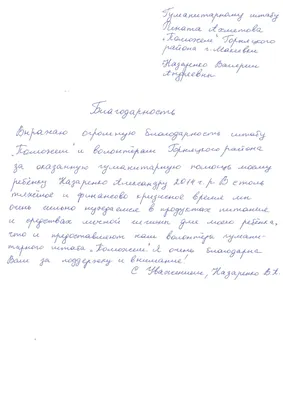 Гуманитарному штабу
Рината Ахметова
„Поможем" Горняцкого
района г. Макеевк
Назаренко Валерии
Андреевны
Благодарность
Выражаю огромную благодарность штабу
„Поможем" и волонтёрам Горняцкого района
за оказанную гуманитарную помощь моему
ребёнку Назаренко Александру 2014 г.р. В столь
тяжёлое и финансово кризисное время мы
очень сильно нуждаемся в продуктах питания
и средствах личной гигиены для моего ребёнка,
что и предоставляет нам волонтёр гумани-
тарного штаба „Поможем". Я очень благодарна
Вам за поддержку и внимание!
С Уважением, Назаренко В.А.